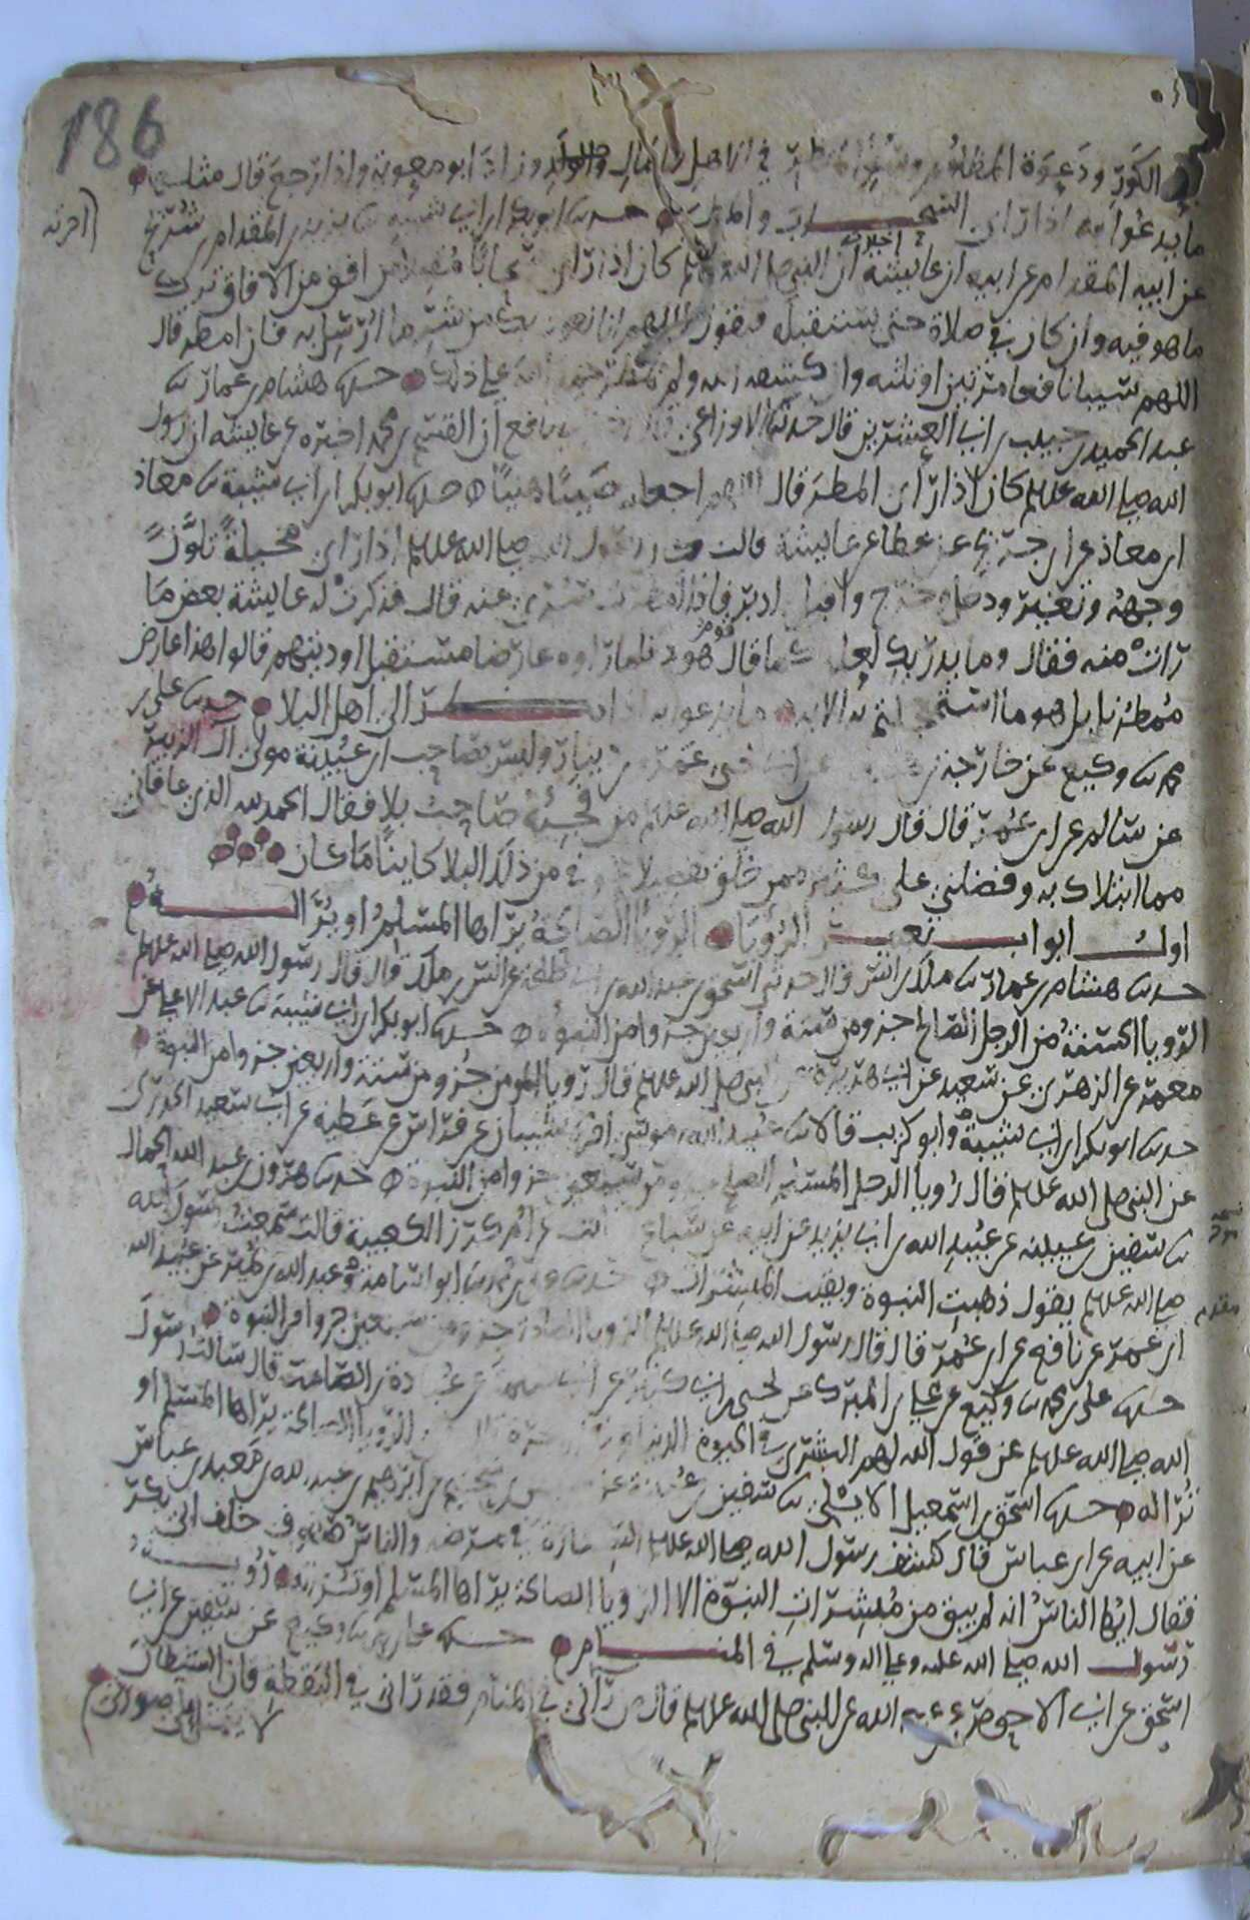 186
الكور ودعوة المظلوم وسوء المنظر في الاهل والمال وزاد ابو معوية واذا رجع قال مثلها
ما يدعوا به اذا راى السحاب والمطر حدثنا ابو بكر ابن ابي شيبه ثنا يزيد بن المقدام بن شريح
عن ابيه المقدام عن ابيه ان عايشة اخبرته ان النبي صلى الله عليه وسلم كان اذا راى سحابا مقبلا من افق من الافاق ترك
ما هو فيه وان كان في صلاة حتى يستقبله فيقول اللهم انا نعوذ بك من شر ما ارسل به فان امطر قال
اللهم سيبا نافعا مرتين او ثلثه وان كشفه الله ولم يمطر حمد الله على ذلك حدثنا هشام بن عمار ثنا
عبد الحميد بن حبيب بن ابي العشرين قال حدثنا الاوزاعي نافع ان القسم بن محمد اخبره عن عايشه ان رسول
الله صلى الله عليه وسلم كان اذا راى المطر قال اللهم اجعله صيبا هنيا حدثنا ابو بكر ابن ابي شيبة ثنا معاذ
ابن معاذ عن ابن جريج عن عطا عن عايشة قالت كان رسول الله صلى الله عليه وسلم اذا راى مخيلة تلون
وجهه وتغير ودخل وخرج واقبل وادبر فاذا امطرت سري عنه قال فذكرت له عايشة بعض ما
رات منه فقال وما يدريك لعله كما قال قوم هود فلما راوه عارضا مستقبل اوديتهم قالوا هذا عارض
ممطرنا بل هو ما استعجلتم به الاية ما يدعوا به اذا نظر الى اهل البلا حدثنا علي بن
محمد ثنا وكيع عن خارجة بن عن ابي يحيى عمرو بن دينار وليس بصاحب ابن عيينة مولى ال الزبير
عن سالم عن ابن عمر قال قال رسول الله صلى الله عليه وسلم من فجئه صاحب بلا فقال الحمد لله الذي عافاني
مما ابتلاك به وفضلني على كثير ممن خلق تفضيلا عوفي من ذلك البلا كاينا ما كان
اول ابواب تعبير الرؤيا الرويا الصالحة يراها المسلم او ترى له
حدثنا هشام بن عمار ثنا ملك بن انس قال حدثني اسحق بن عبد الله بن ابي طلحة عن انس بن ملك قال قال رسول الله صلى الله عليه وسلم
الرويا الحسنة من الرجل الصالح جزو من ستة واربعين جزوا من النبوة حدثنا ابو بكر ابن ابي شيبة ثنا عبد الاعلى عن
معمر عن الزهري عن سعيد عن ابي هريرة عن النبي صلى الله عليه وسلم قال رويا المومن جزو من ستة واربعين جزوا من النبوة
حدثنا ابو بكر ابن ابي شيبة وابو كريب قالا ثنا عبيد الله بن موسى شيبان عن فراس عن عطية عن ابي سعيد الخدري
عن النبي صلى الله عليه وسلم قال رويا الرجل المسلم الصالح جزو من سبعين جزوا من النبوة حدثنا هرون بن عبد الله الحمال
ثنا سفين بن عيينه عن عبيد الله بن ابي يزيد عن ابيه عن سباع بن ثابت عن ام كرز الكعبية قالت سمعت رسول الله
صلى الله عليه وسلم يقول ذهبت النبوة وبقيت المبشرات حدثنا علي بن محمد ثنا ابو اسامة وعبد الله بن نمير عن عبيد الله
ابن عمر عن نافع عن ابن عمر قال قال رسول الله صلى الله عليه وسلم الرويا الصالحة جزو من سبعين جزوا من النبوة
حدثنا علي بن محمد ثنا وكيع عن علي بن المبرك عن يحيى بن ابي كثير عن ابي سلمة عن عبادة بن الصامت قال سالت رسول
الله صلى الله عليه وسلم عن قول الله لهم البشرى في الحيوة الدنيا وفي الاخرة قال هي الرويا الصالحة يراها المسلم او
ترا له حدثنا اسحق بن اسمعيل الايلي ثنا سفين بن عيينة عن سليمن بن سحيم عن ابرهيم بن عبد الله بن معبد بن عباس
عن ابيه عن ابن عباس قال كشف رسول الله صلى الله عليه وسلم الستارة في مرضه والناس صفوف خلف ابي بكر
فقال ايها الناس انه لم يبق من مبشرات النبوة الا الرويا الصالحة يراها المسلم او ترى له رؤية
رسول الله صلى الله عليه وعلى اله وسلم في المنام حدثنا علي بن محمد ثنا وكيع عن سفين عن ابي
اسحق عن ابي الاحوص عن عبد الله عن النبي صلى الله عليه وسلم قال من راني في المنام فقد راني في اليقظة فان الشيطان
لا يتمثل على صورتي